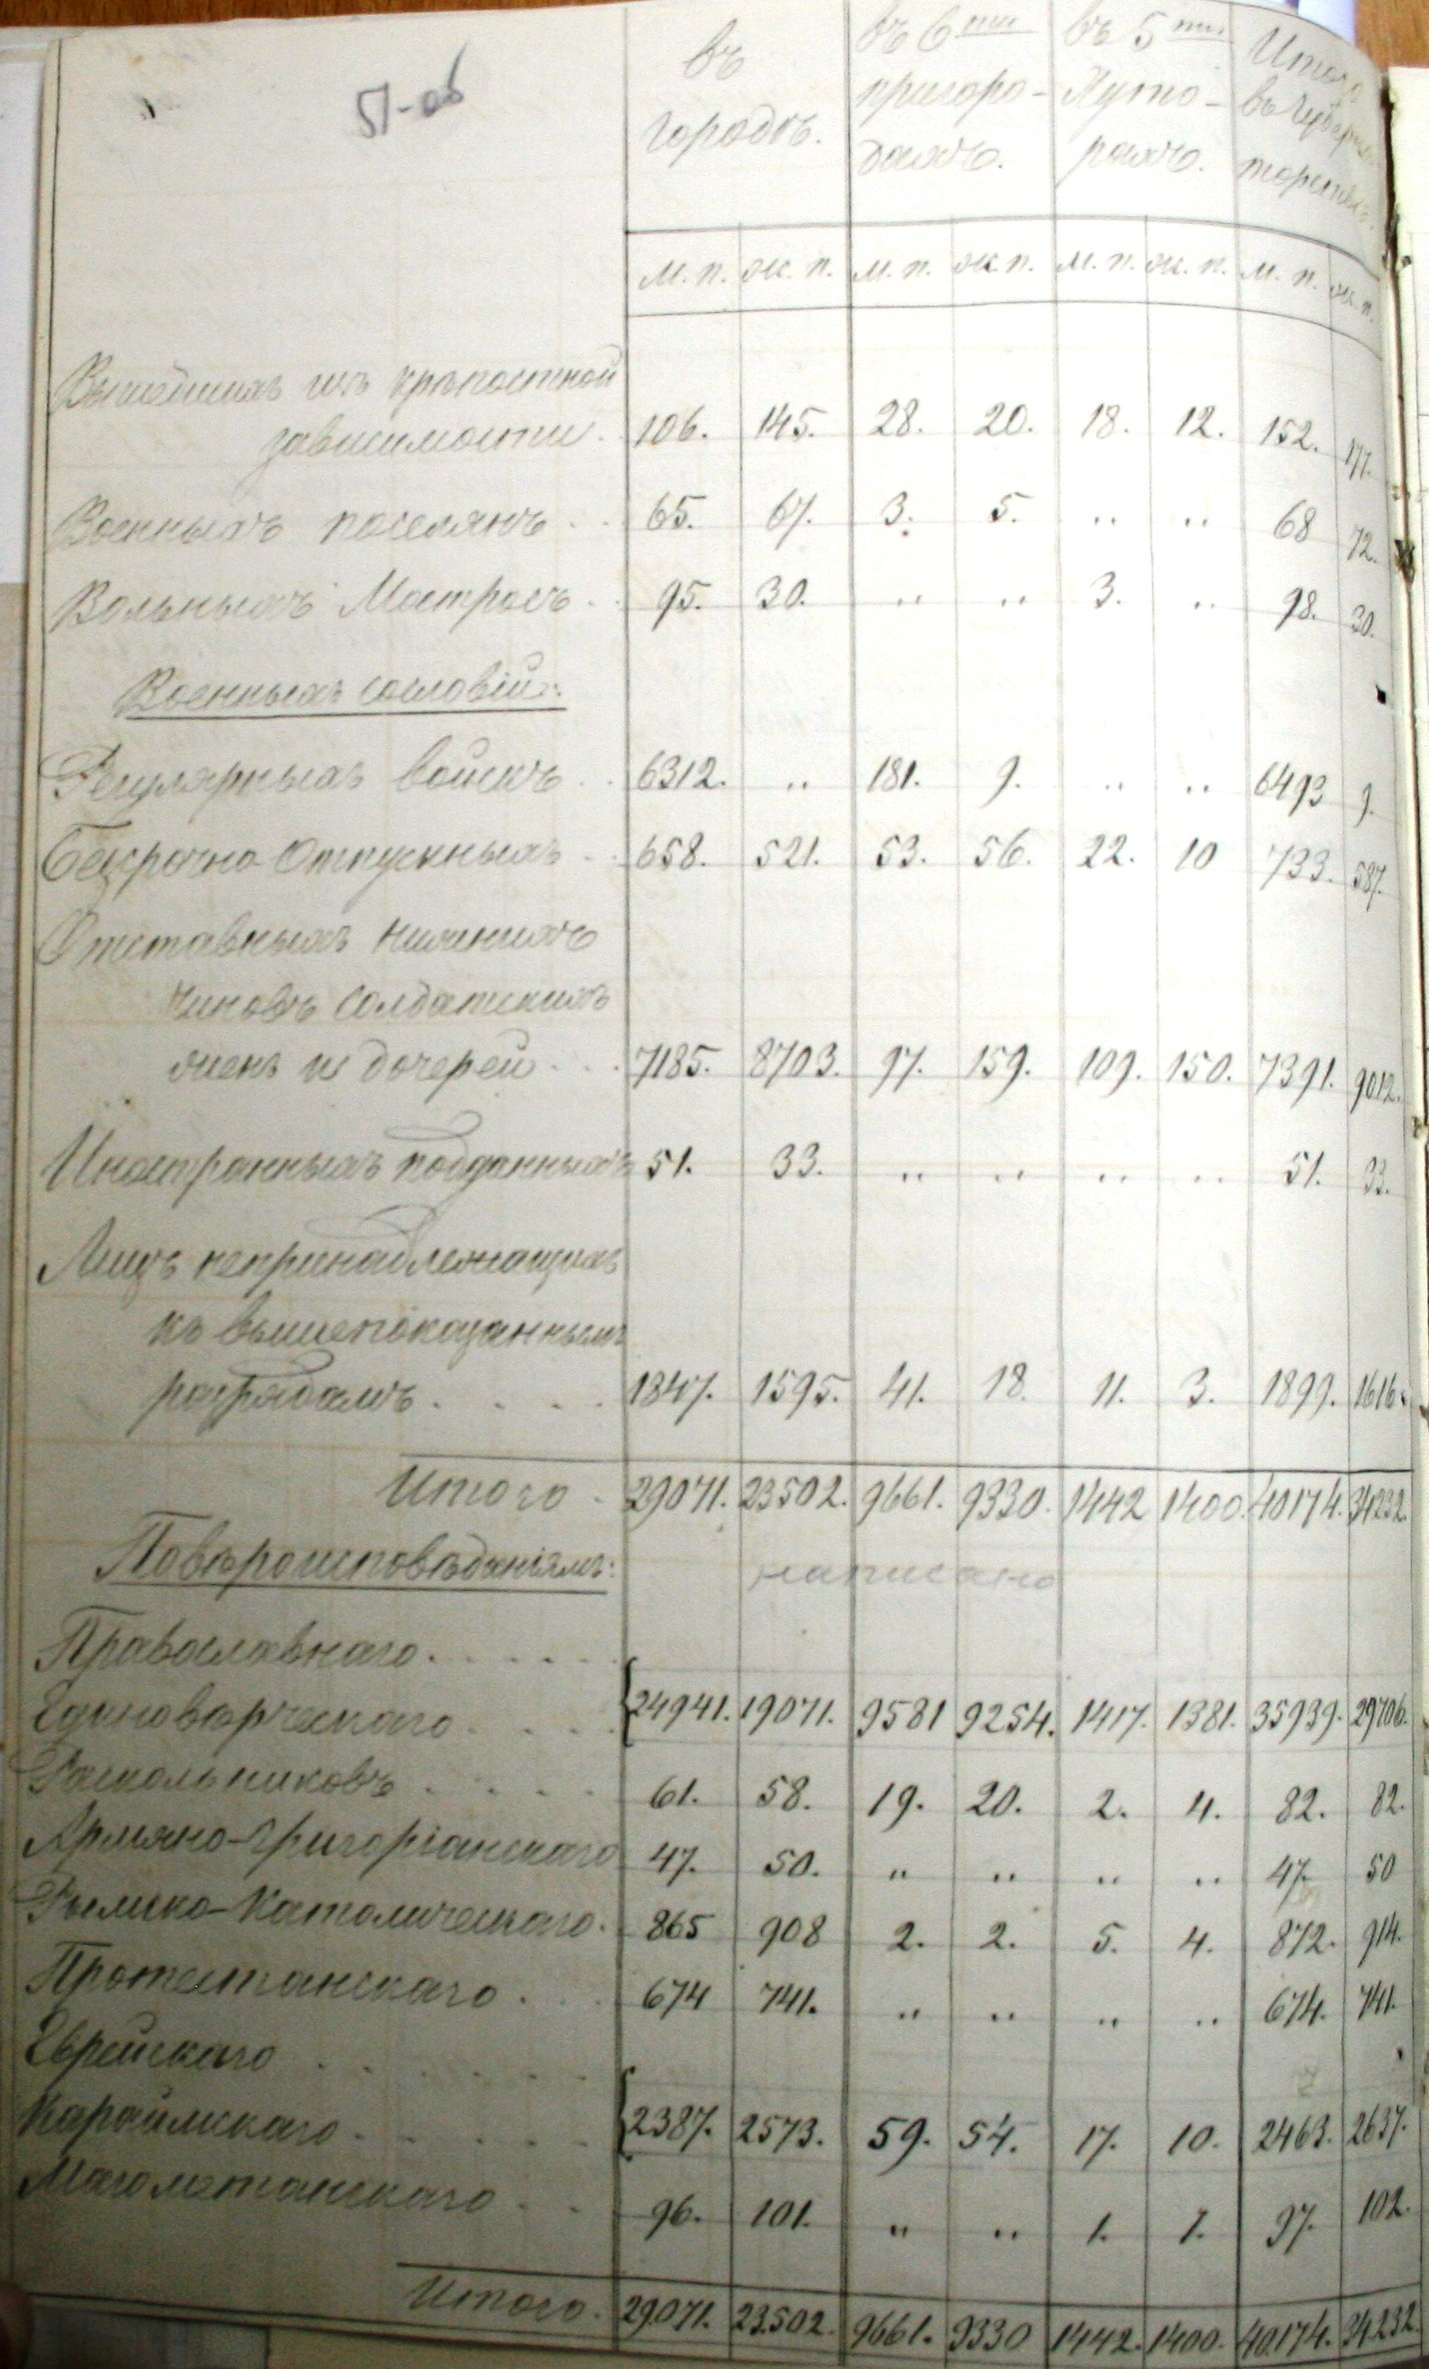 51-об
въ городѣ. въ 6ти пригородахъ. въ 5ти Хуторахъ. Итого въ
м. п. ж. п. м. п. ж. п. м. п. ж. п. м. п. ж. п.
Вышедшихъ изъ крѣпостной
зависимости. 106. 145. 28. 20. 18. 12. 152. 177.
Военныхъ поселянъ . . 65. 67. 3. 5. .. .. 68 72.
Вольныхъ Матросъ . . 95. 30. .. .. 3. .. 98. 30.
Военныхъ сословій:
Регулярныхъ войскъ . . 6312. .. 181. 9. .. .. 6493 9.
Безсрочно Отпускныхъ . . 658. 521. 53. 56. 22. 10 733. 587.
Отставныхъ нижнихъ
чиновъ солдатскихъ
женъ и дочерей . . . 7185. 8703. 97. 159. 109. 150. 7391. 9012.
Иностранныхъ подданныхъ 51. 33. .. .. .. .. 51. 33.
Лицъ непринадлежащихъ
къ вышепоказаннымъ
разрядамъ . . . . 1847. 1595. 41. 18. 11. 3. 1899. 1616.
Итого . 29071. 23502. 9661. 9330. 1442 1400. 40174. 34232.
Повѣроисповѣданіямъ: написано
Православнаго . . . . .
Единовѣрческаго . . . . 24941. 19071. 9581 9254. 1417. 1381. 35939. 29706.
Раскольниковъ . . . . 61. 58. 19. 20. 2. 4. 82. 82.
Армяно-Григоріанскаго 47. 50. .. .. .. .. 47. 50
Римско-Католическаго. 865 908 2. 2. 5. 4. 872. 914.
Протестанскаго . . . 674 741. .. .. .. .. 674. 741.
Еврейскаго . . . . . .
Караимскаго . . . . . 2387. 2573. 59. 54. 17. 10. 2463. 2637.
Магометанскаго . . 96. 101. .. .. 1. 1. 97. 102.
Итого. 29071. 23502. 9661. 9330 1442. 1400. 40174. 34232.